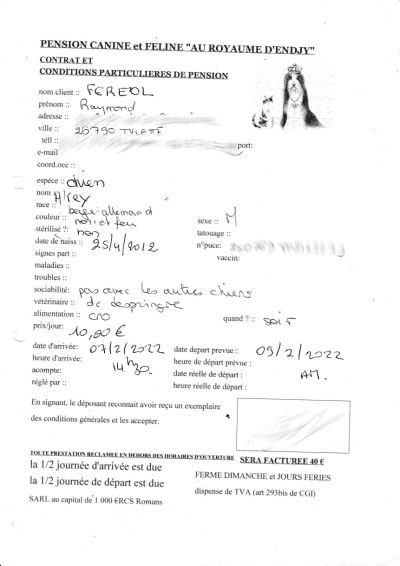 PENSION CANINE et FELINE "AU ROYAUME D'ENDJY"
CONTRAT ET
CONDITIONS PARTICULIERES DE PENSION
nom client :: FEREOL
prénom :: Raymond
adresse ::
ville :: 26790
téll :: port:
e-mail
coord.occ ::
espèce :: chien
nom
race :: berger allemand
couleur :: noir et feu sexe :: M
stérilisé ?: non tatouage ::
date de naiss :: 25/4/2012 n°puce:
signes part :: vaccin:
maladies ::
troubles ::
sociabilité: pas avec les autres chiens
vétérinaire :: de
alimentation :: cro quand ? :: soir
prix/jour: 10,00 €
date d'arrivée: 07/2/2022 date depart prevue :: 09/2/2022
heure d'arrivée: 14h30. heure de départ prévue :
acompte: date réelle de départ : AM.
réglé par :: heure réelle de départ :
En signant, le déposant reconnait avoir reçu un exemplaire
des conditions générales et les accepter.
TOUTE PRESTATION RECLAMEE EN DEHORS DES HORAIRES D'OUVERTURE SERA FACTUREE 40 €
la 1/2 journée d'arrivée est due FERME DIMANCHE et JOURS FERIES
la 1/2 journée de départ est due dispense de TVA (art 293bis de CGI)
SARL au capital de 1 000 €RCS Romans